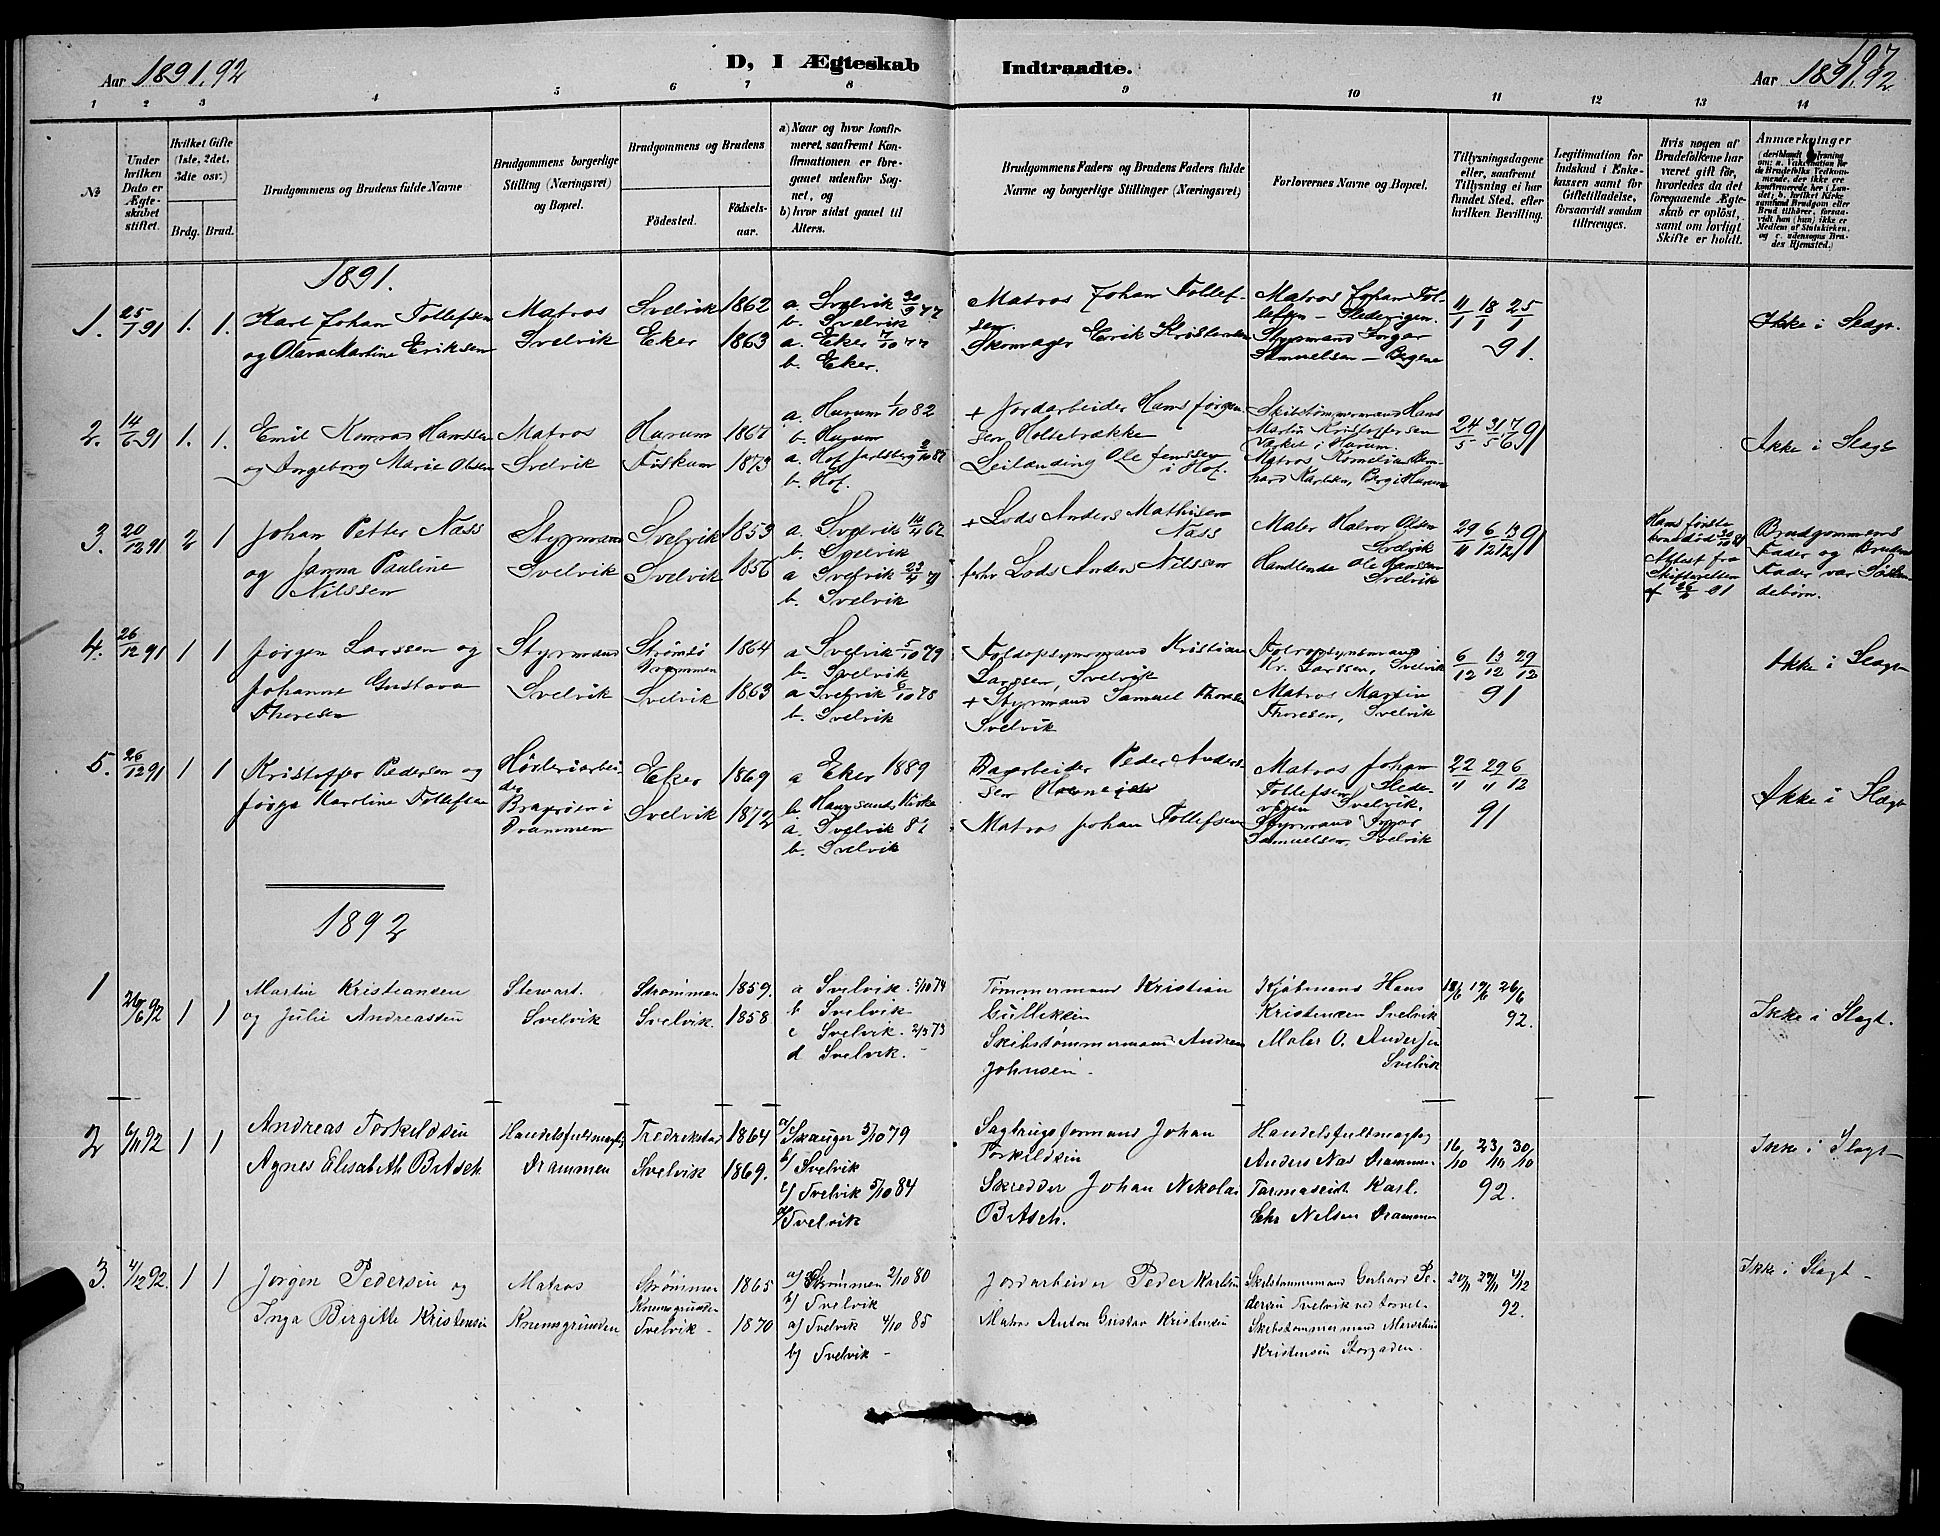 197
Aar 1891.92
D, I Ægteskab Indtraadte.
Aar 1891.92
1 2 3 4 5 6 7 8 9 10 11 12 13 14
No
Under hvilken Dato er Ægteskabet stiftet.
Hvilket Gifte (1ste, 2det, 3die osv.)
Brdg. Brud.
Brudgommens og Brudens fulde Navne
Brudgommens borgerlige Stilling (Næringsvei) og Bopæl.
Brudgommens og Brudens
Fødested. Fødselsaar.
a) Naar og hvor konfirmeret, saafremt Konfirmationen er foregaaet udenfor Sognet, og
b) hvor sidst gaaet til Alters.
Brudgommens Faders og Brudens Faders fulde Navne og borgerlige Stillinger (Næringsvei)
Forlovernes Navne og Bopæl.
Tillysningsdagene eller, saafremt Tillysning ei har fundet Sted, efter hvilken Bevilling.
Legitimation for Indskud i Enkekassen samt for Giftetilladelse, forsaavidt saadan tiltrænges.
Hvis nogen af Brudefolkene har været gift før, hvorledes da det foregaaende Ægteskab er opløst, samt om lovligt Skifte er holdt.
Anmærkninger
1891.
1. 25/1 91 1. 1.
Karl Johan Tollefsen
og Olava Martine Eriksen
Matros
Svelvik
Svelvik 1862
Eker 1863
a. Svelvik 30/9 77
b. Svelvik
a. Eker 7/10 77
b. Eker.
Matros Johan Tollefsen
Skomager Erik Kristensen
Matros Johan Tollefsen –
Styrmand
Samuelsen – Bergene
11/1 18/1 25/1
91.
Ikke i Slægt.
2. 14/6 91 1. 1.
Emil Konrad Hanssen
og Ingeborg Marie Olsen
Matros
Svelvik
Hurum 1867
Fiskum 1873
a. Hurum 1/10 82
b. Hurum
a. Hof Jarlsberg 2/10 87
b. Hof.
+ Jordarbeider Hans Jørgensen
Holtebrække
Leilænding Ole Jenssen
i Hof.
Skibstømmermand Hans
Martin Kristoffersen
Værket i Hurum
Matros Kornelius Bernhard
Karlsen, Berg i Hurum
24/5 31/5 7/6 91
Ikke i Slægt
3. 20/12 91 2 1
Johan Petter Næss
og Janna Pauline
Nilssen
Styrmand
Svelvik
Svelvik 1853
Svelvik 1856
a. Svelvik
b. Svelvik
a Svelvik
b. Svelvik
+ Lods Anders Mathisen
Næss
fhv Lods Anders Nilssen
Maler Halvor Olsen
Svelvik
Handlende Ole Hanssen
Svelvik
29/11 6/12 13/12 91
Hans første
Attest fra
Skifteretten
af 26/11 91
Brudgommens
Fader og Brudens
Fader var Søskendebørn.
4. 26/12 91 1 1
Jørgen Larssen og
Johanne Gustava
Thoresen
Styrmand
Svelvik
Strømsø
Drammen 1864
Svelvik 1863
a Svelvik 5/10 79
b. Svelvik
a Svelvik 6/10 78
b. Svelvik
Toldopsynsmand Kristian
Larssen, Svelvik
+ Styrmand Samuel Thoresen
Svelvik
Toldopsynsmand
Kr. Larssen, Svelvik
Matros Martin
Thoresen, Svelvik
6/12 13/12 29/12
91
Ikke i Slægt
5. 26/12 91 1 1
Kristoffer Pedersen og
Jørga Karoline Tollefsen
Høvleriarbeider
Bragerøen i
Drammen
Eker 1869
Svelvik 1872
a Eker 1889
b. Haugsunds Kirke
a. Svelvik 87
b. Svelvik
Peder Andersen
Matros Johan Tollefsen
Matros Johan
Tollefsen,
Svelvik.
Styrmand
Samuelsen, Svelvik
22/11 29/11 6/12
91
Ikke i Slægt
1892
1 26/6 92 1 1
Martin Kristiansen
og Julie Andreassen
Stewart.
Svelvik
Strømmen 1859.
Svelvik. 1858
a Svelvik. 5/10 74
b Svelvik
c Svelvik. 2/3 73
d Svelvik. –
Tømmermand Kristian
Gulliksen
Skibstømmermand Andreas
Johnsen –
Kjøbmand Hans
Kristensen Svelvik
Maler O. Andersen
Svelvik
12/6 19/6 26/6
92.
Ikke i Slægt.
2 6/11 92 1 1
Andreas Torkildsen
Agnes Elisabeth Bitsch
Handelsfuldmægtig
Drammen
Fredrikstad 1864
Svelvik 1869.
a/ Skauger 5/10 79
b/ Svelvik
c/ Svelvik 5/10 84
d/ Svelvik
Sagbrugsformand Johan
Torkildsen
Skredder Johan Nikolai
Bitsch.
Handelsfuldmægtig
Anders Næs Drammen
Farmaseut Karl.
Nilsen Drammen
16/10 23/10 30/10
92.
Ikke i Slægt –
3. 4/12 92. 1 1
Jørgen Pedersen og
Inga Birgitte Kristensen
Matros
Knemsgrunden
Strømmen 1865
Knemsgrunden
Svelvik – 1870
a) Strømmen 2/10 80
b) Svelvik
a) Svelvik 4/10 85
b) Svelvik –
Jordarbeider Peder Karlsen
Matros Anton Gustav Kristensen
Skibstømmermand Gerhard Pedersen
Svelvik ved torvet.
Skibstømmermand
Kristensen Storgaden.
20/11 27/11 4/12
92.
Ikke i Slægt –